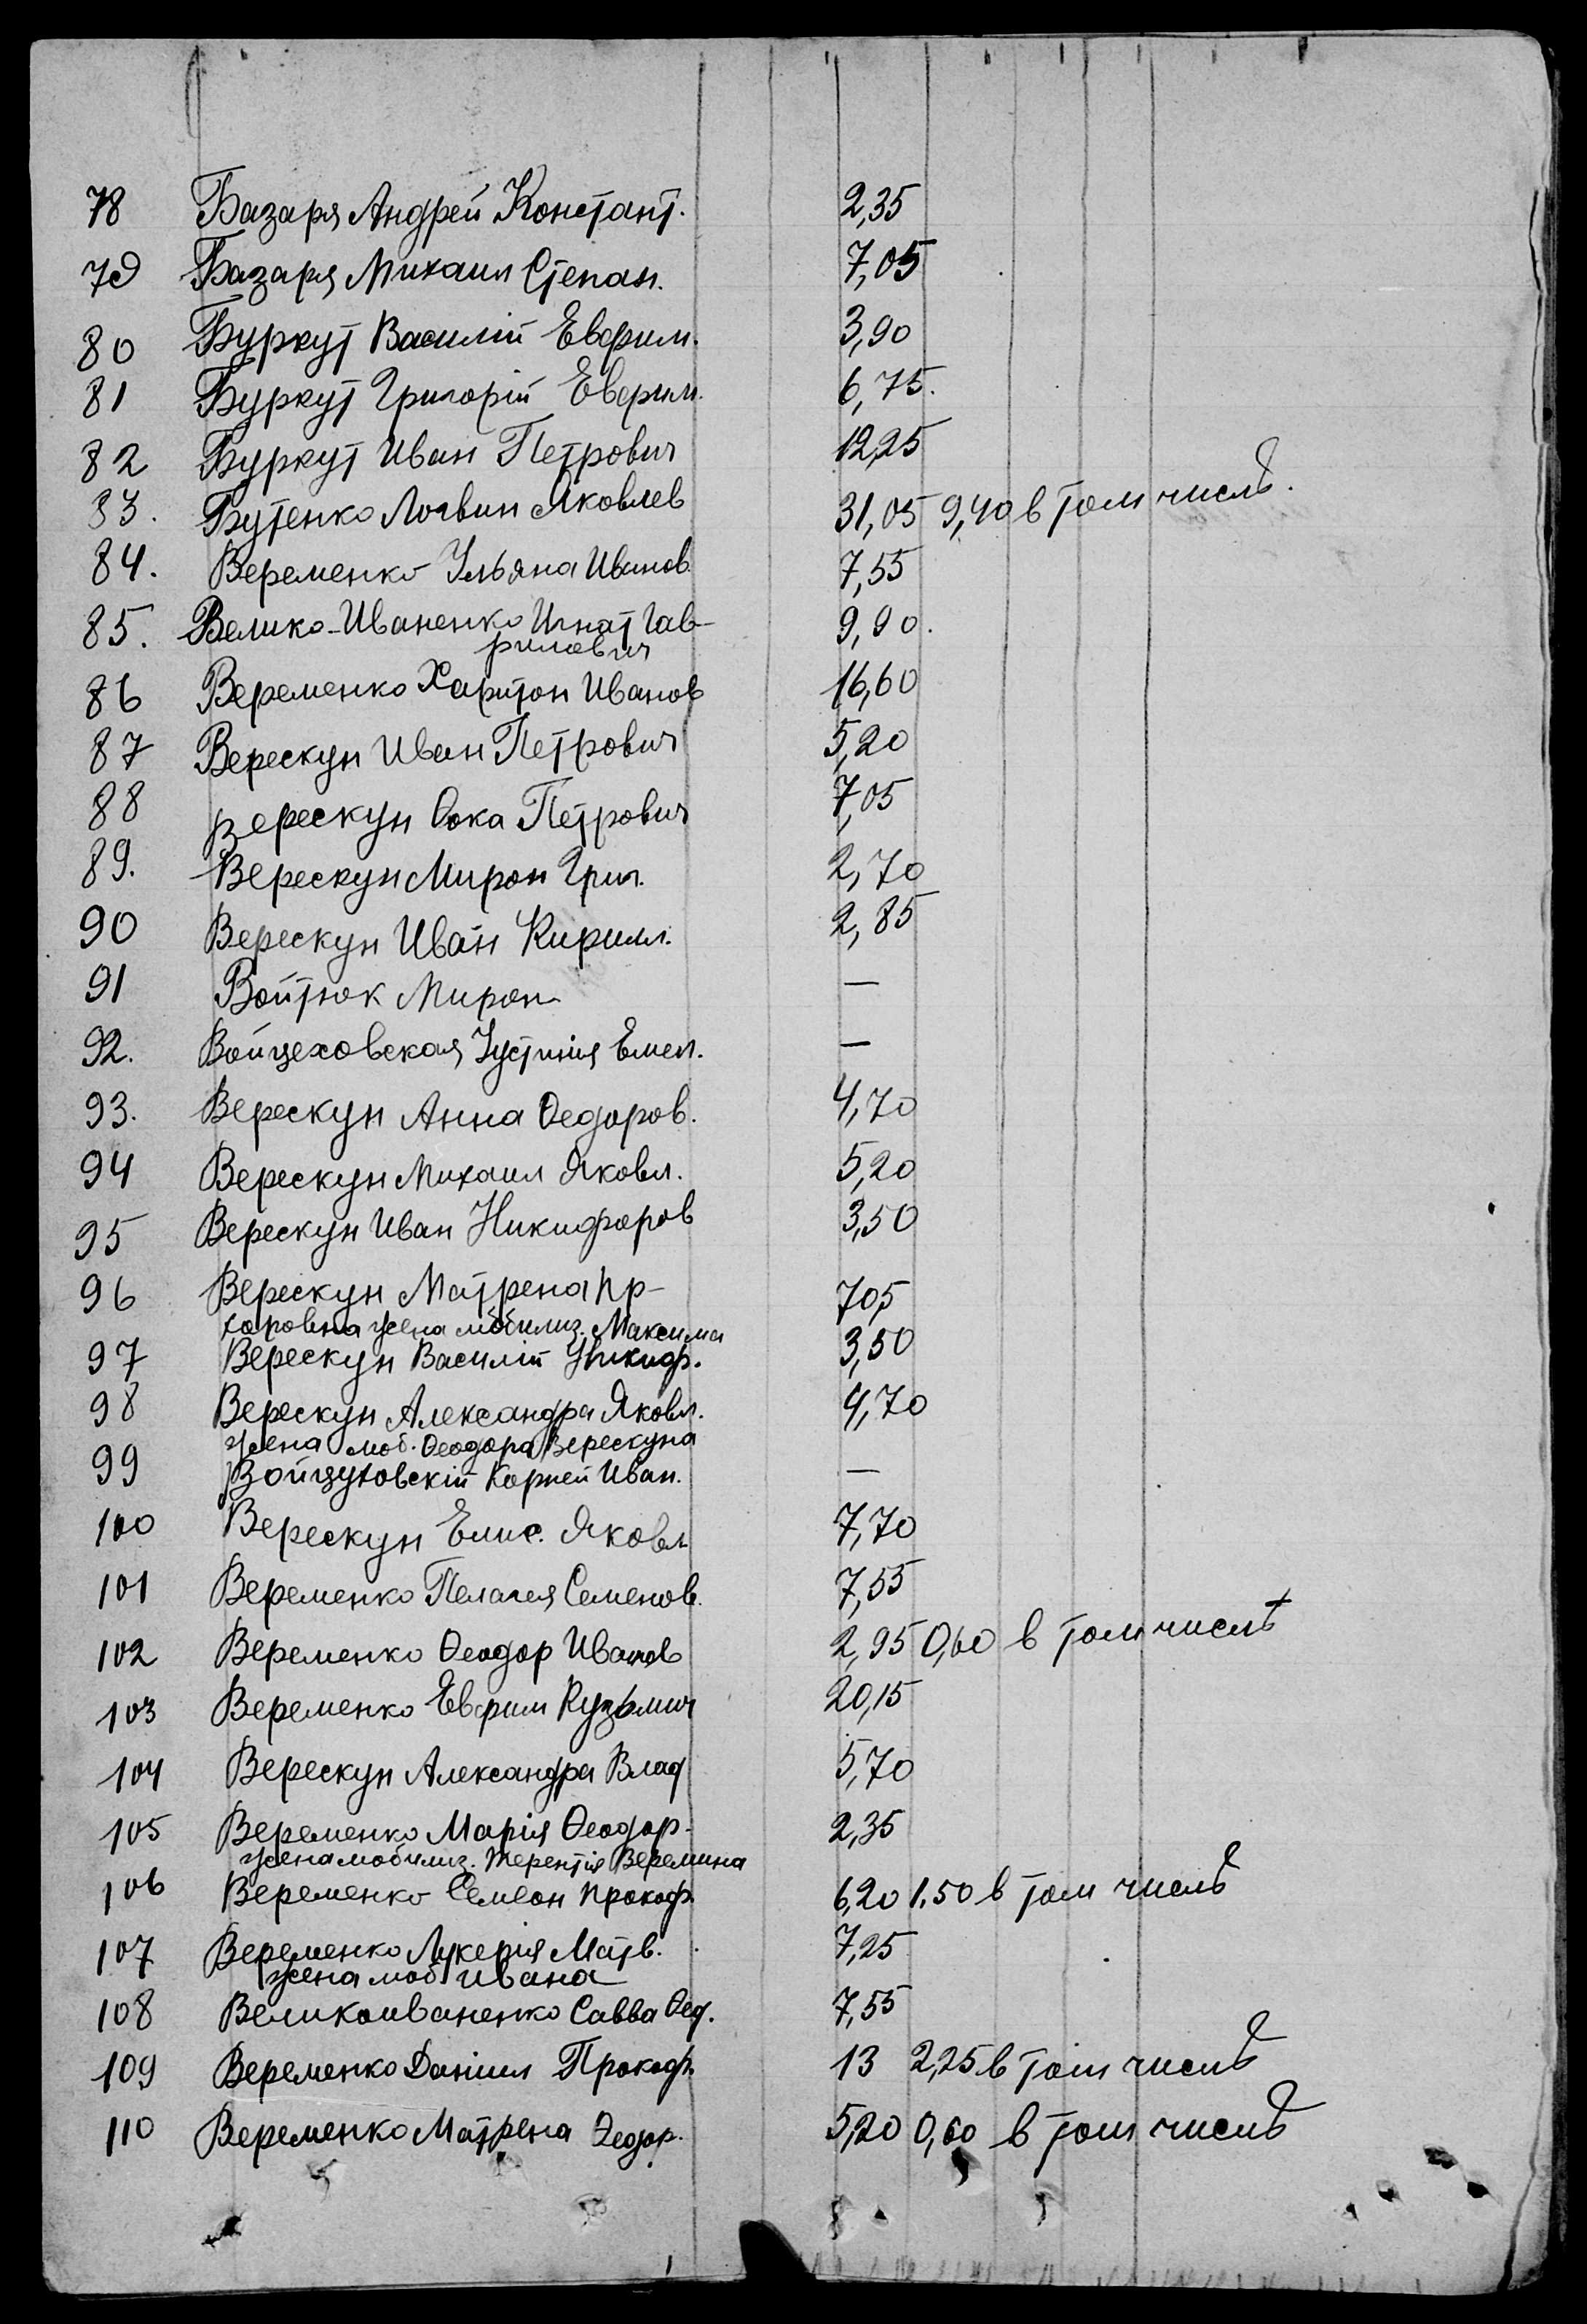 78 Базаря Андрей Констант. 2,35
79 Базаря Михаил Степан. 7,05
80 Буркут Василій Евфим. 3,90
81 Буркут Григорій Евфим. 6,75.
82 Буркут Иван Петрович 12,25
83. Бутенко Логвин Яковлев 31,05 9,40 в том числѣ.
84. Веременко Ульяна Иванов. 7,55
85. Велико-Иваненко Игнат Гав- 9,90.
рилович
86 Веременко Харитон Иванов 16,60
87 Верескун Иван Петрович 5,20
88 Верескун Ѳока Петрович 7,05
89. Верескун Мирон Григ. 2,70
90 Верескун Иван Кирилл. 2,85
91 Войтюк Мирон —
92. Войцеховская Устинія Емел. —
93. Верескун Анна Ѳеодоров. 4,70
94 Верескун Михаил Яковл. 5,20
95 Верескун Иван Никифоров 3,50
96 Верескун Матрена Пр- 7,05
хоровна жена мобилиз. Максима
97 Верескун Василій Никиф. 3,50
98 Верескун Александра Яковл. 4,70
жена моб. Ѳеодора Верескуна
99 Войцуховскій Корней Иван. —
100 Верескун Елис. Яковл. 7,70
101 Веременко Пелагея Семенов. 7,55
102 Веременко Ѳеодор Иванов 2,95 0,60 в том числѣ
103 Веременко Евфим Кузьмич 20,15
104 Верескун Александра Влад 5,70
105 Веременко Марія Ѳеодор. 2,35
жена мобилиз. Терентія Веремина
106 Веременко Семеон Прокоф. 6,20 1.50 в том числѣ
107 Веременко Лукерія Матв. 7,25
жена моб. Ивана
108 Великоиваненко Савва Ѳед. 7,55
109 Веременко Даніил Прокоф. 13 2,25 в том числѣ
110 Веременко Матрена Ѳеодор. 5,20 0,60 в том числѣ